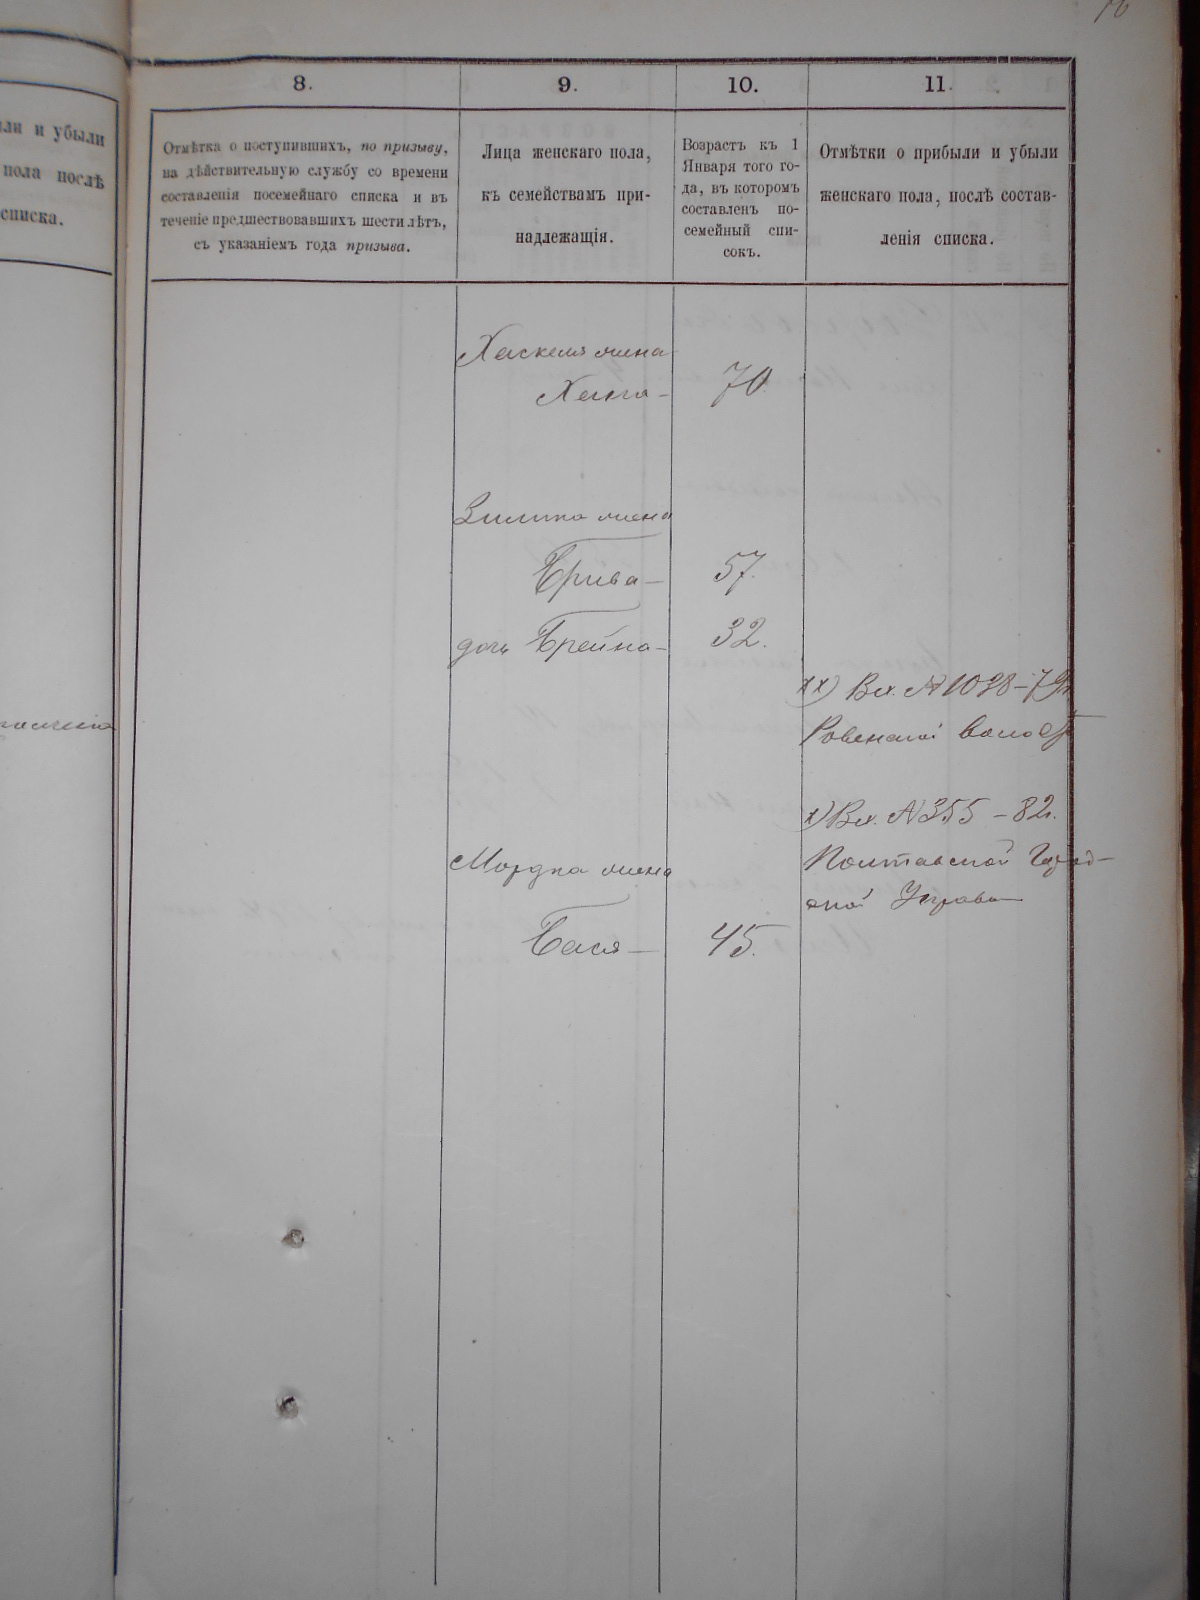 8.
9.
10.
11.
или и убыли
пола послѣ
списка.
Отмѣтка о поступившихъ, по призыву,
на дѣйствительную службу со времени
составленія посемейнаго списка и въ
теченіе предшествовавшихъ шести лѣтъ,
съ указаніемъ года призыва.
Лица женскаго пола,
къ семействамъ при-
надлежащія.
Возрастъ къ 1
Января того го-
да, въ которомъ
составленъ по-
семейный спи-
сокъ.
Отмѣтки о прибыли и убыли
женскаго пола, послѣ состав-
ленія списка.
Хаскеля жена
70
жена
Брива — 57.
дочь Брейна — 32.
хх) Вх. № 1038 – 79г
х) Вх. № 355 – 82г.
Мордка жена
Полтавской Город-
ской Управы
Бася — 45.